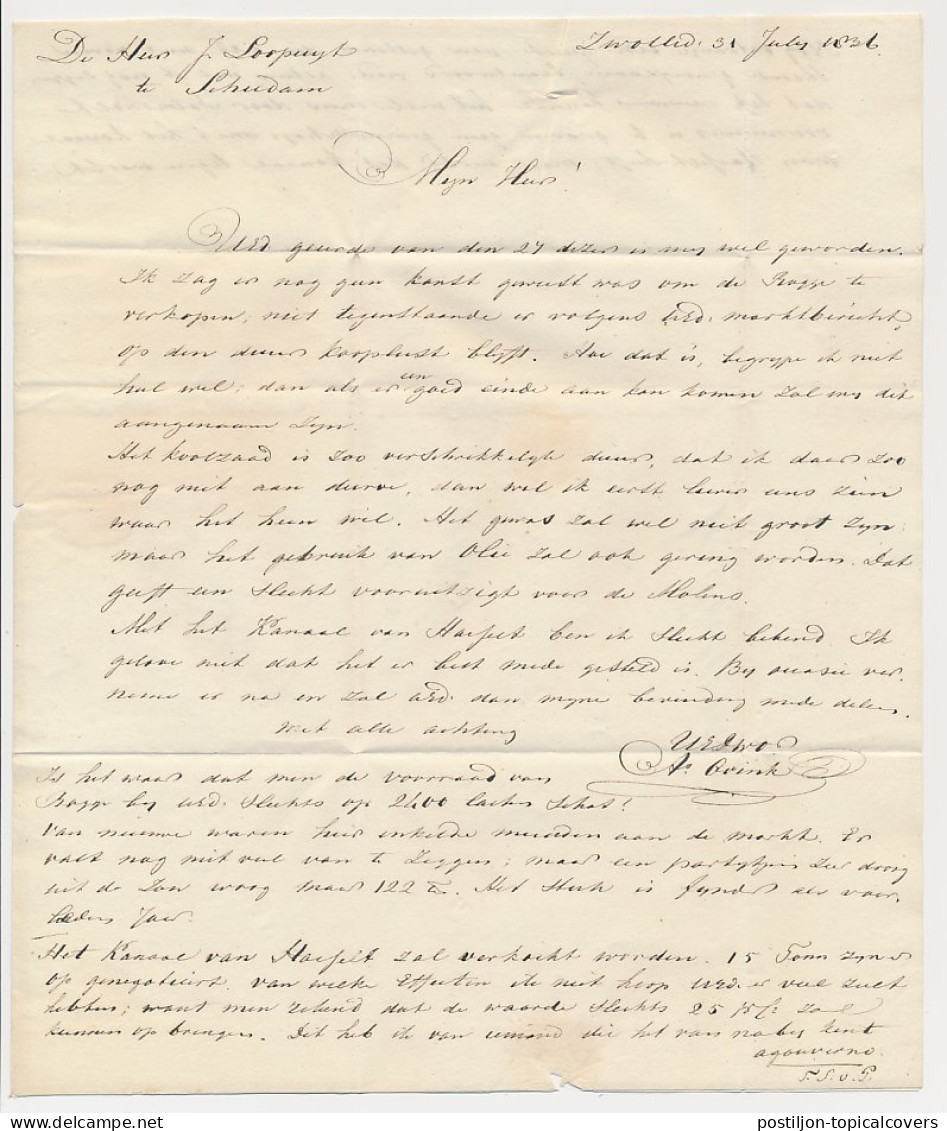 De Heer J. Loopuyt
te Schiedam
Zwolle. 31 July 1836
Mijn Heer!
UEd. geeerde van den 27 dezer is my wel geworden.
Ik zag er nog geen kanst geweest was om de Rogge te
verkopen, niet tegenstaande er volgens UEd. marktbericht
op den duur kooplust blyft. Hoe dat is, begrype ik niet
hal wel; dan als er een goed einde aan kan komen zal my dit
aangenaam zyn.
Het koolzaad is zoo verschrikkelyk duur, dat ik daar zoo
nog niet aan durve, dan wel ik eerst liever eens zien
waar het heen wil. Het gewas zal wel niet groot zyn
maar het gebruik van Olie zal ook gering worden. Dat
geeft een slecht vooruitzigt voor de Molens.
Met het Kanaal van Hasselt ben ik slecht bekend. Ik
gelove niet dat het er best mede gesteld is. By occasie ver
neme er na en zal UEd. dan myne bevinding mede delen.
met alle achting
UEdwD
As Ovink
Is het waar dat men de voorraad van
Rogge by UEd. slechts op 2400 lasten schat!
Van nieuwe waren hier enkelde mudden aan de markt. Er
valt nog niet veel van te zeggen; maar een partytjen zeer droog
uit de Zon woog maar 122 ℔. Het stuk is fynder als voor
leden Jaar.
Het Kanaal van Hasselt zal verkocht worden. 15 Tonn zyn er
op genegotieert. van welke Effecten ik niet hoop UEd. er veel zult
hebben; want men rekend dat de waarde slechts 25 pCt zal
kunnen op brengen. Dit heb ik van iemand die het van naby kent
agouverno.
T. S. v. P.
postiljon-topicalcovers / postiljon-topicalcovers.com